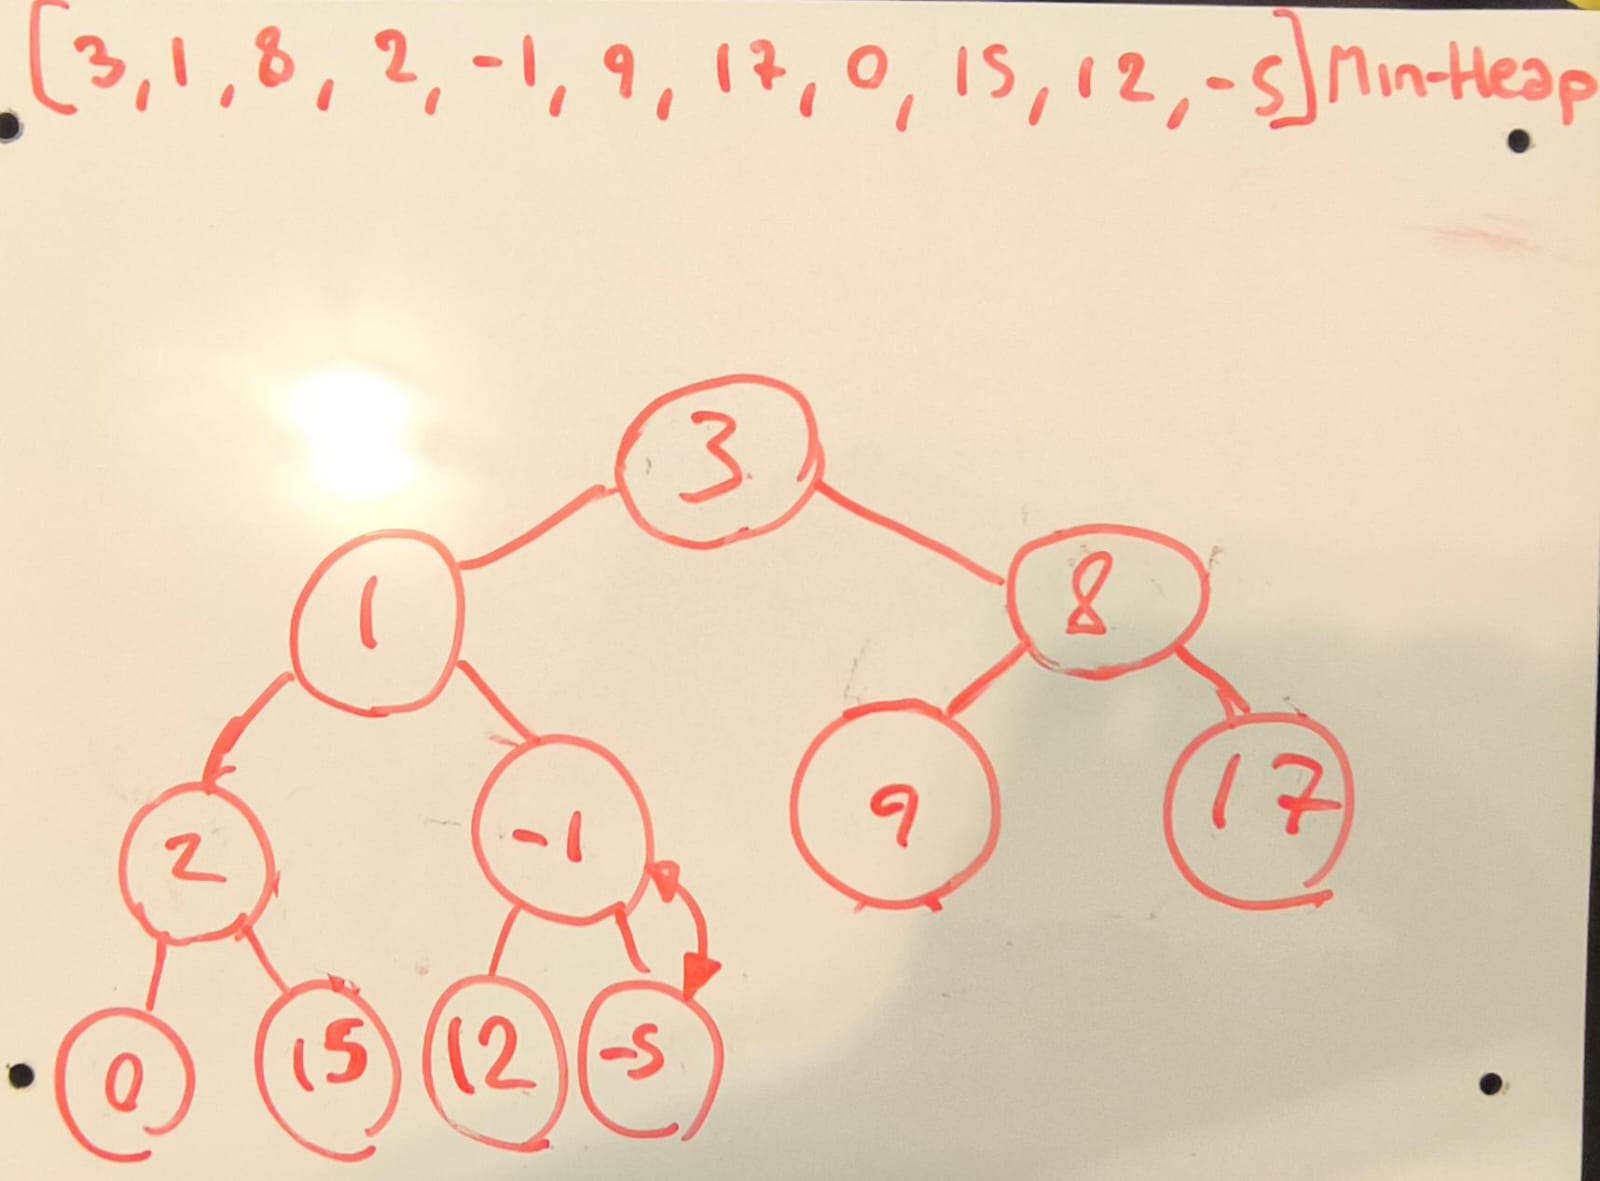 [3, 1, 8, 2, -1, 9, 17, 0, 15, 12, -5] Min-Heap
3
1 8
2 -1 9 17
0 15 12 -5